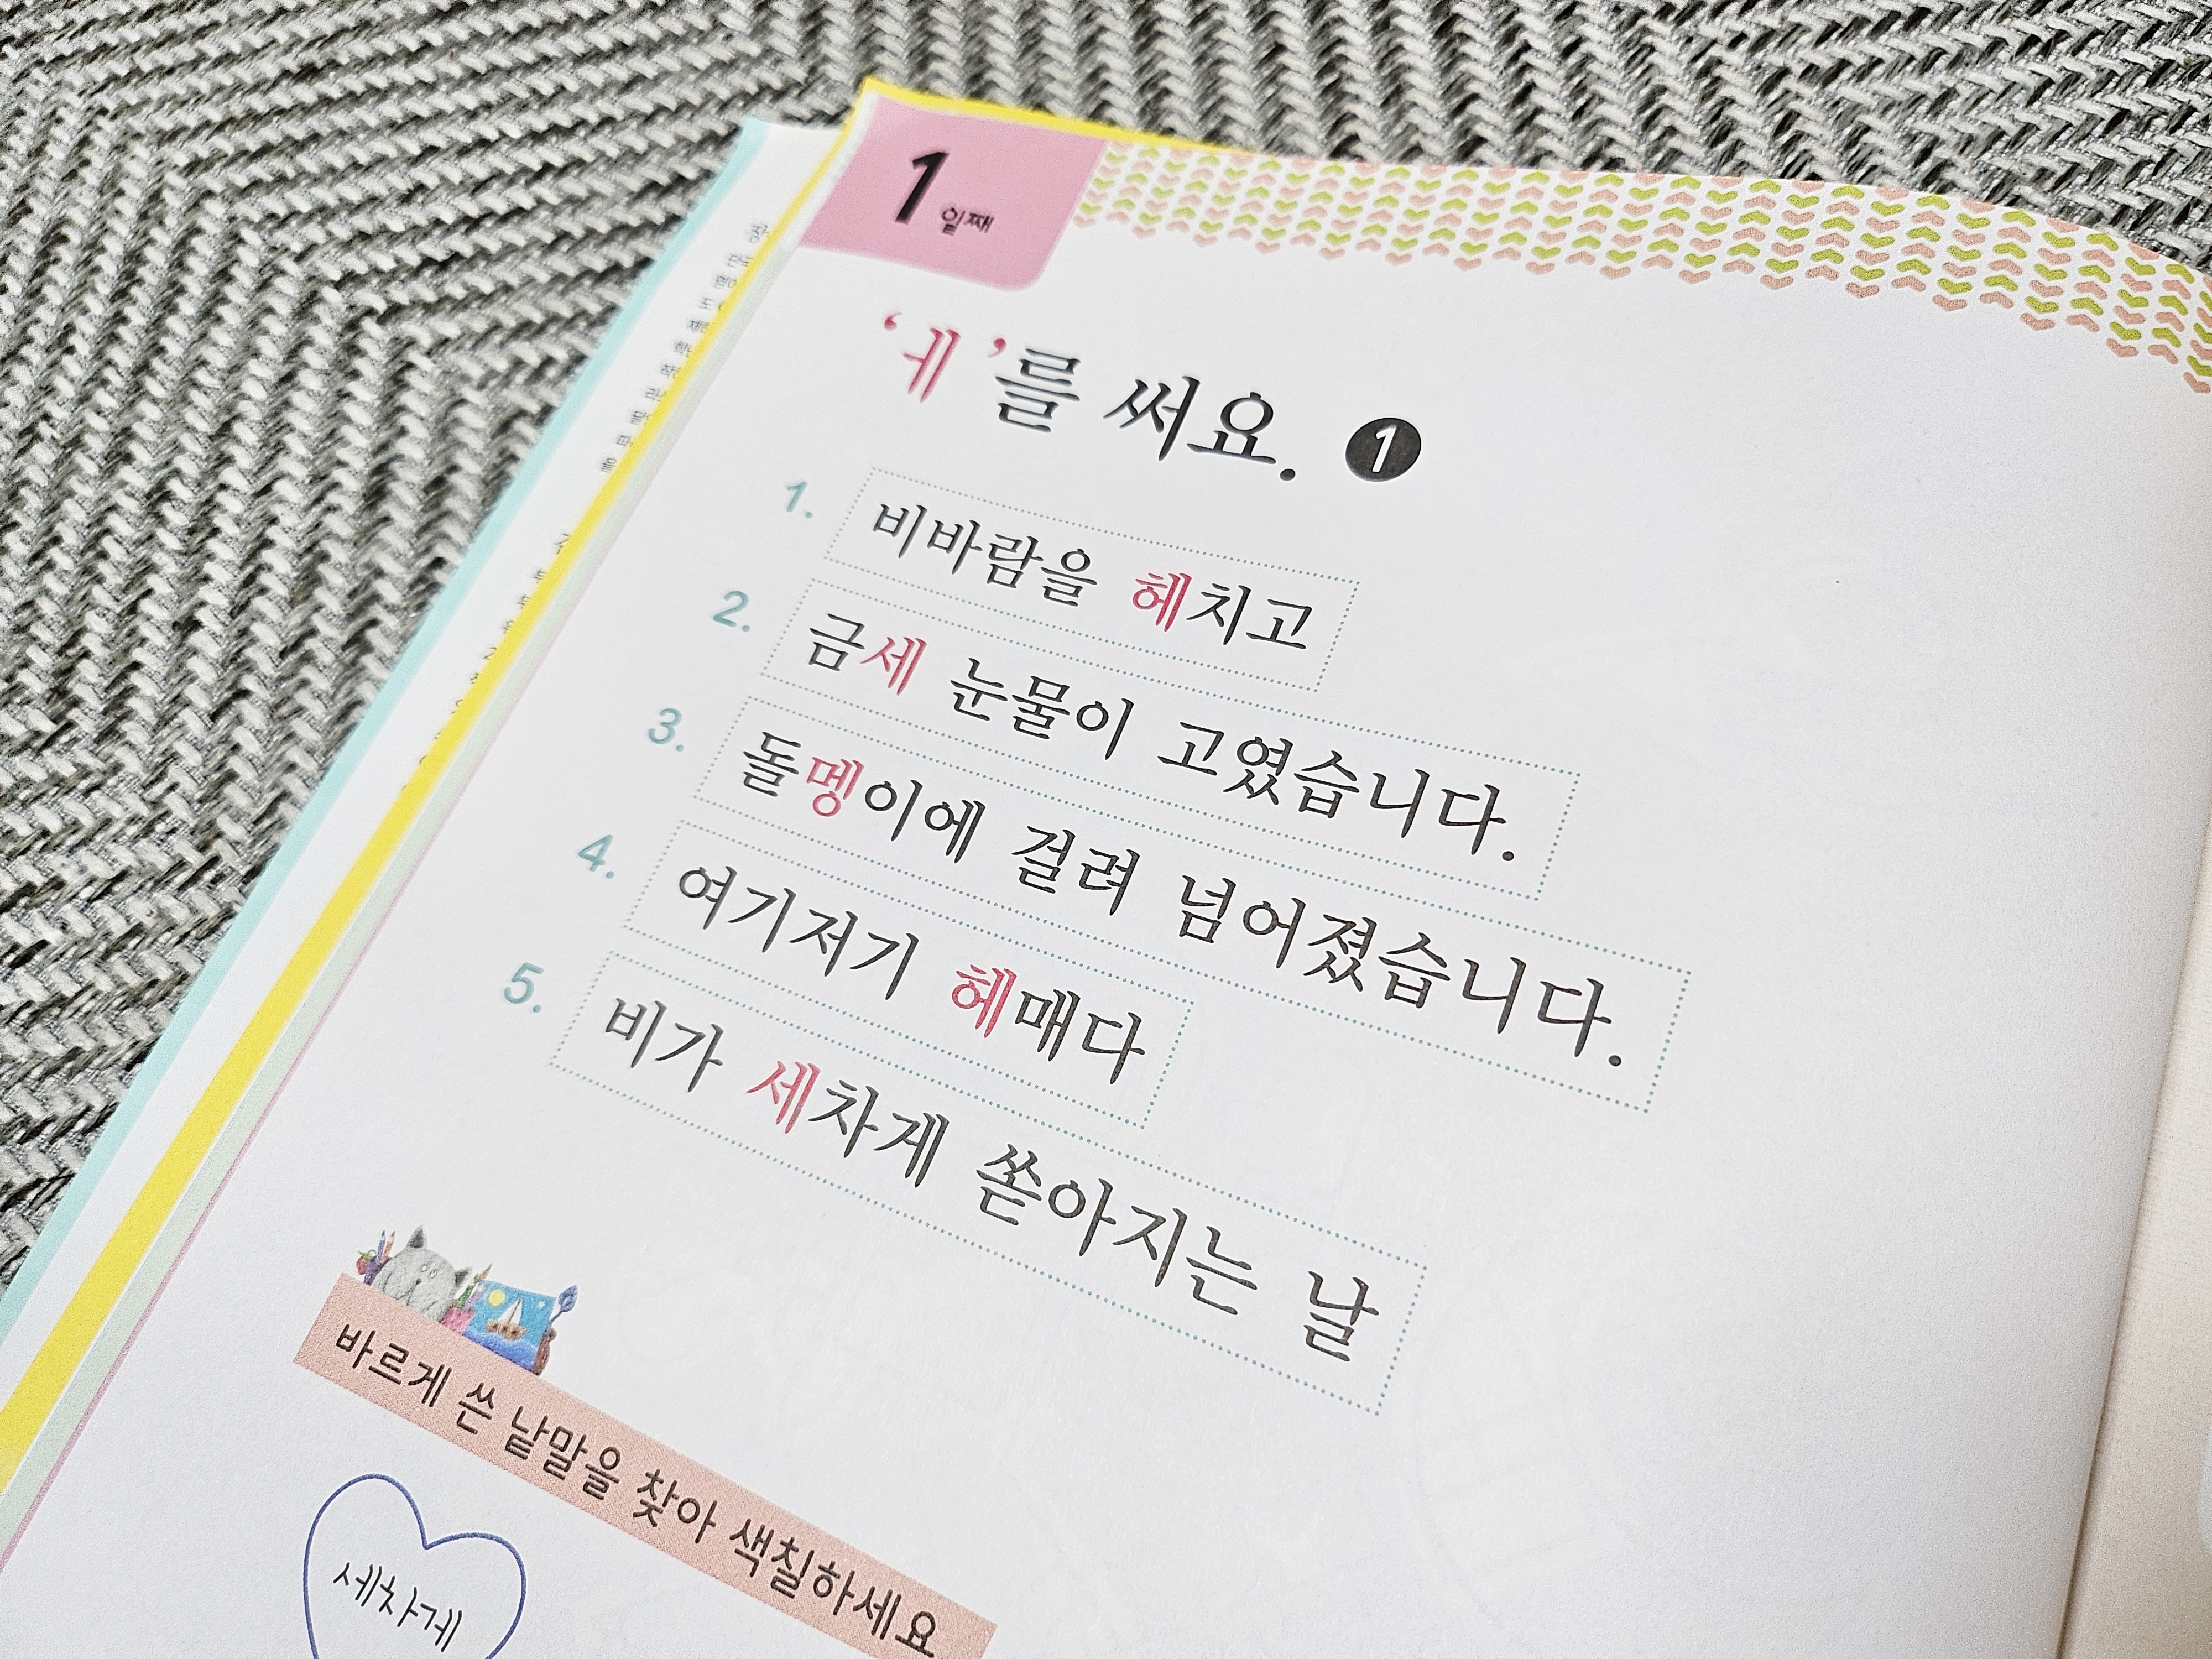 1일째
‘ㅔ’를 써요. ❶
1. 비바람을 헤치고
2. 금세 눈물이 고였습니다.
3. 돌멩이에 걸려 넘어졌습니다.
4. 여기저기 헤매다
5. 비가 세차게 쏟아지는 날
바르게 쓴 낱말을 찾아 색칠하세요
세차게